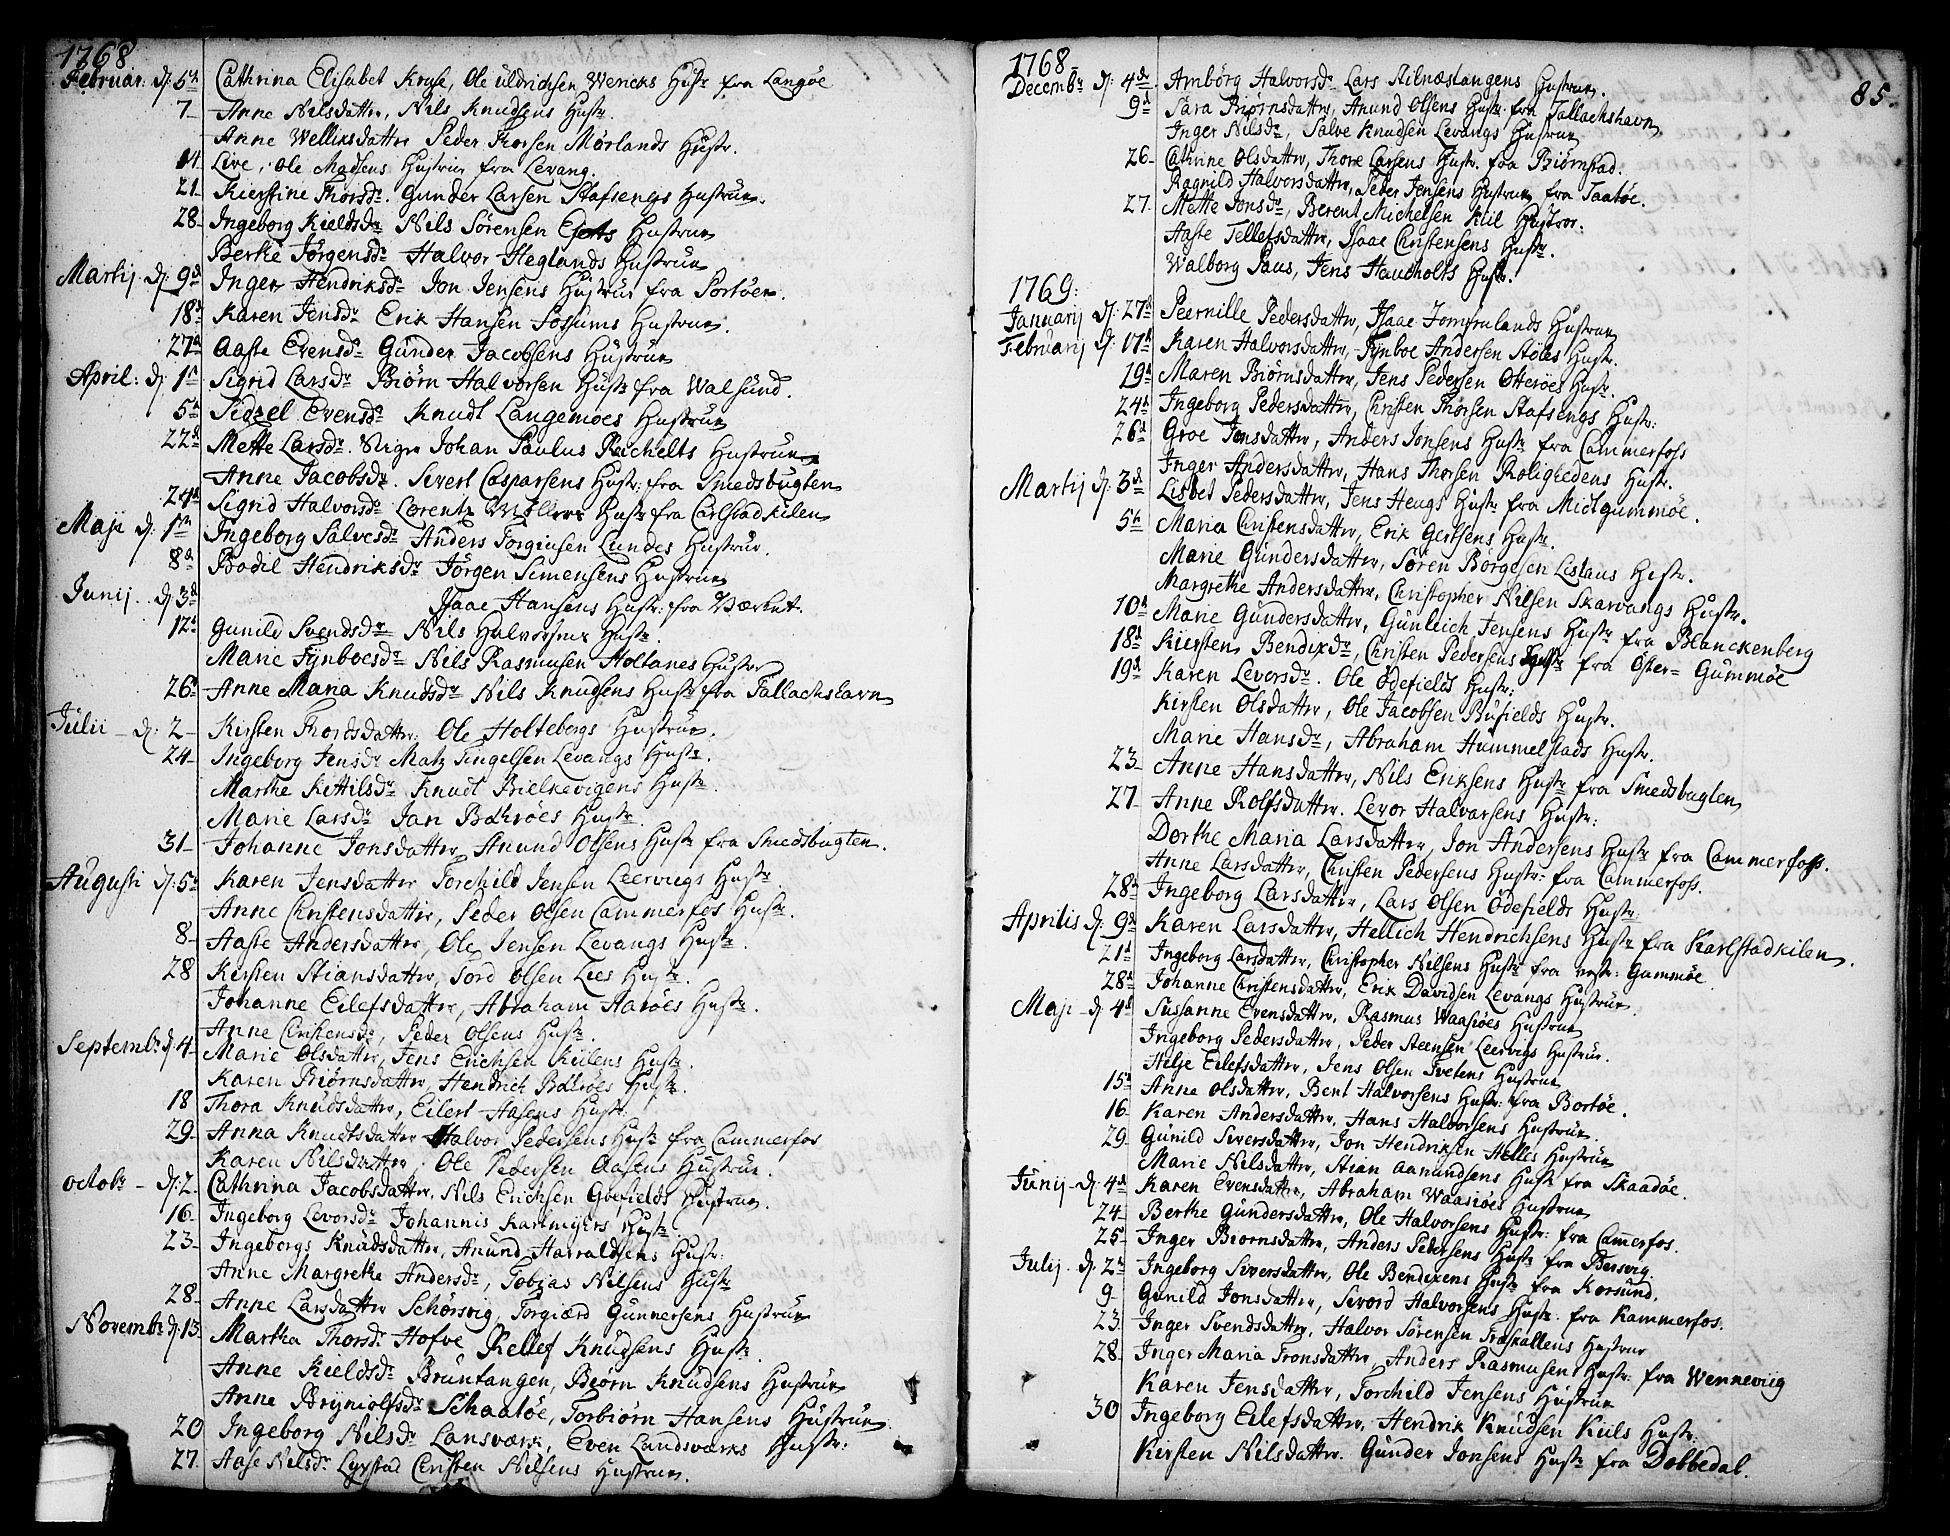 1768
Februar. d: 5te Cathrina Elisabet Kruse, Ole Uldrichsen Wericks Hustr fra Langøe
7 Anne Nilsdatter, Nils Knudsens Hustr.
Anne Welliksdatter Peder Thorsen Mørlands Hustr.
14. Live, Ole Madsens Hustrue fra Levang.
21 Kierstine Thorsdr. Gunder Larsen Stafsengs Hustrue.
28 Ingeborg Kieldsdr Nils Sörensen Hustrue
Berthe Jörgensdr Halvor Heglands Hustrue
Martij d: 9d Inger Hendriksdr Jon Jensens Hustrue fra Portöen.
18d Karen Jensdr Erik Hansen Fossums Hustrue.
27d Aaste Evensdr Günder Jacobsens Hustrue
April: d: 1d Sigrid Larsdr Biörn Halvorsen Hustr fra Walsund.
5d Sidzel Evensdr Knudt Langemoes Hustrue
22d Mette Larsdr. Johan Paulus Rachelts Hustrue
Anne Jacobsdr. Sivert Casparsens Hustr: fra Smedsbugten
24d Sigrid Halvorsdr Lorentz Möllers Hustr fra Carlstadkilen
Maji d: 1te Ingeborg Salvesdr Anders Torgiusen Lundes Hustrue.
8d Bodil Hendriksdr Jörgen Simensens Hustrue
Junij d: 3d Isaac Hansens Hustr: fra Værket.
12t Gunild Svendsdr Nils Halvorsens Hustr.
Marie Fynboesdr Nils Rasmusen Holtanes Hustr
26t Anne Maria Knudsdr Nils Knudsens Hustr fra Tallachshavn
Julii d: 2 Kirsten Thordsdatter: Ole Holtebergs Hustrue.
24 Ingeborg Jensdr Matz Tingelsen Levangs Hustr.
Marthe Kittilsdr Knudt Bielkevigens Hustr.
Marie Larsdr Jan Bahröes Hustr.
31 Johanne Jonsdatter, Anund Olsens Hustr fra Smedsbugten.
Augusti d: 5t Karen Jensdatter Torchild Jensen Leervigs Hustr
Anne Christensdatter, Peder Olsen Cammerfos Hustr.
8 Aaste Andersdatter, Ole Jensen Levangs Hustr.
28 Kirsten Stiansdatter, Tord Olsen Lees Hustr.
Johanne Eilefsdatter, Abraham Aaröes Hustr.
Anne Christensdr, Peder Olsens Hustr.
Septembr d: 4 Marie Olsdatter, Jens Erichsen Kulens Hustr.
Karen Biörnsdatter, Hendrich Bahröes Hustr.
18 Thora Knudsdatter, Eilert Aasens Hustr.
29 Anna Knudtsdatter Halvor Pedersens Hustr fra Cammerfos
Karen Nilsdatter, Ole Pedersen Aasens Hustrue.
Octobr d: 2 Cathrina Jacobsdatter, Nils Erichsen Gofields Hustrue.
16 Ingeborg Levorsdr Johannis Karlmyers Hustr
23 Ingeborg Knudsdatter, Anund Harraldsens Hustr:
Anne Margrethe Andersdr, Tobias Nilsens Hustr
28 Anne Larsdatter Schörsvig, Torgierd Gunnersens Hustrue
Novembr d: 13 Martha Thorsdr Hofve Kellef Knudsens Hustr.
Anne Kieldsdr Bruntangen, Biörn Knudsens Hustrue
Anne Bryniolfsdr Schaatöe, Torbiörn Hansens Hustrue
20 Ingeborg Nilsdr Lansværk, Even Landsværks Hustr:
27 Aase Nilsdr Lyrstad Christen Nilsens Hustrue.
1768
85.
Decembr d: 4de Amborg Halvorsdr Lars Stilnæstangens Hustrue.
9d Sara Biörnsdatter, Anund Olsens Hustr: fra Tallachshavn
Inger Nilsdr, Salve Knudsen Levangs Hustrue
26 Cathrine Olsdatter, Thore Larsens Hustr. fra Biörnstad.
Ragnild Halvorsdatter, Peder Jensens Hustrue fra Taatöe.
27 Mette Jonsdr, Berent Michelsen Kiil Hustroe:
Aaste Tellefsdatter, Isaac Christensens Hustr.
Walborg Paus, Jens Haucholts Hustr.
1769:
Januarij d: 27d Peernille Pedersdatter, Isaac Tommrlands Hustrue
Februarij d: 17d Karen Halvorsdatter, Fynboe Andersen Stöles Hustr.
19d Maren Biörnsdatter, Jens Pedersen Otteröes Hustr.
24d Ingeborg Pedersdatter, Christen Thorsen Stafsengs Hustr:
26d Groe Jonsdatter, Anders Jonsens Hustr fra Cammerfoss
Inger Andersdatter, Hans Thorsen Rolighedens Hustr.
Martij d: 3d Lisbet Pedersdatter, Jens Heugs Hustr fra Midtgummöe.
5te Maria Christensdatter, Erik Gertsens Hustr.
Marie Gundersdatter, Sören Börgesen Listaus Hustr.
Margrethe Andersdatter, Christopher Nilsen Skarvangs Hustr.
10d Marie Gundersdatter, Gunleich Jensens Hustr fra Blanckenberg
18d Kiersten Bendixdr, Christen Pedersens Hustr fra Öster-Gummöe
19d Karen Levorsdr. Ole Ödefields Hustr:
Kirsten Olsdatter, Ole Jacobsen Büfields Hustr.
Marie Hansdr, Abraham Hummelstads Hustr.
23 Anne Hansdatter, Nils Eriksens Hustr fra Smedsbugten
27 Anne Rolfsdatter. Levor Halvorsens Hustr:
Dorthe Maria Larsdatter, Jon Andersens Hustr fra Cammerfoss.
Anne Larsdatter, Christen Pedersens Hustr: fra Cammerfoss.
28d Ingeborg Larsdatter, Lars Olsen Ödefields Hustr:
Aprilis d: 9d Karen Larsdatter, Hellich Hendrichsens Hustr fra Karlstadkilen.
21d Ingeborg Larsdatter, Christopher Nilsens Hustr fra vestr: Gummöe
28d Johanne Christensdatter, Erik Davidsen Levangs Hustrue.
Maji d: 4d Susanne Evensdatter, Rasmus Waasiöes Hustrue
Ingeborg Pedersdatter, Peder Steensen Leervigs Hustrue.
Helje Eilefsdatter, Jens Olsen Tvetens Hustrue
15d Anne Olsdatter, Bent Halvorsens Hustr: fra Bortöe.
16 Karen Andersdatter, Hans Halvorsens Hustrue.
29 Gunild Siversdatter, Jon Hendriksen Helles Hustrue
Marie Nilsdatter, Stian Aanundsens Hustr fra Skaadöe.
Junij d: 4d Karen Evensdatter, Abraham Waasiöes Hustrue
24 Berthe Gundersdatter, Ole Halvorsens Hustr: fra Camerfos.
25 Inger Biornsdatter, Anders Pedersens Hustr fra Bersvig
Julij d: 2d Ingeborg Siversdatter, Ole Bendixens Hustr fra Korsund.
9 Gunild Jonsdatter, Sivord Halvorsens Hustr: fra Kammerfos:
23 Inger Svendsdatter, Halvor Sörensen Træskallens Hustrue
28 Inger Maria Tronsdatter, Anders Rasmusens Hustr: fra Wenneviig
Karen Jensdatter, Torchild Jensens Hustrue
30 Ingeborg Eilefsdatter, Hendrik Knudsen Kiils Hustr:
Kirsten Nilsdatter. Gunder Jonsens Hustr fra Dobbedal.